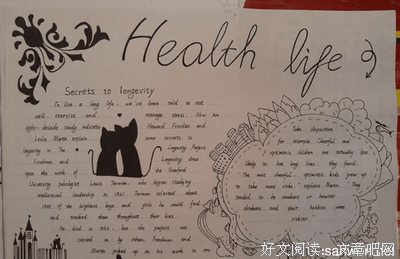 Health life
Secrets to longevity
To live a long life, we've been told to eat
well, exercise and manage stress. Now an
eight-decade study indicates Howard Friedman and
Leslie Martin explain some secrets to
longevity in The Longevity Project
Friedman and Longevity draw
upon the work of the Stanford
University psychologist Lewis Terman, who began studying
intellectual leadership in 1921. Terman selected about
1500 of the brightest boys and girls he could find
and tracked them throughout their lives.
He died in 1956, but the project was
carried on by others. Friedman and
Martin picked up his work in
Take disposition,
for example. Cheerful and
optimistic children are actually less
likely to live long lives, they found.
The most cheerful, optimistic kids grew up
to take more risks," explains Martin. "They
tended to be smokers or heavier
drinkers, and their hobbies were
riskier.
好文阅读:文章吧网